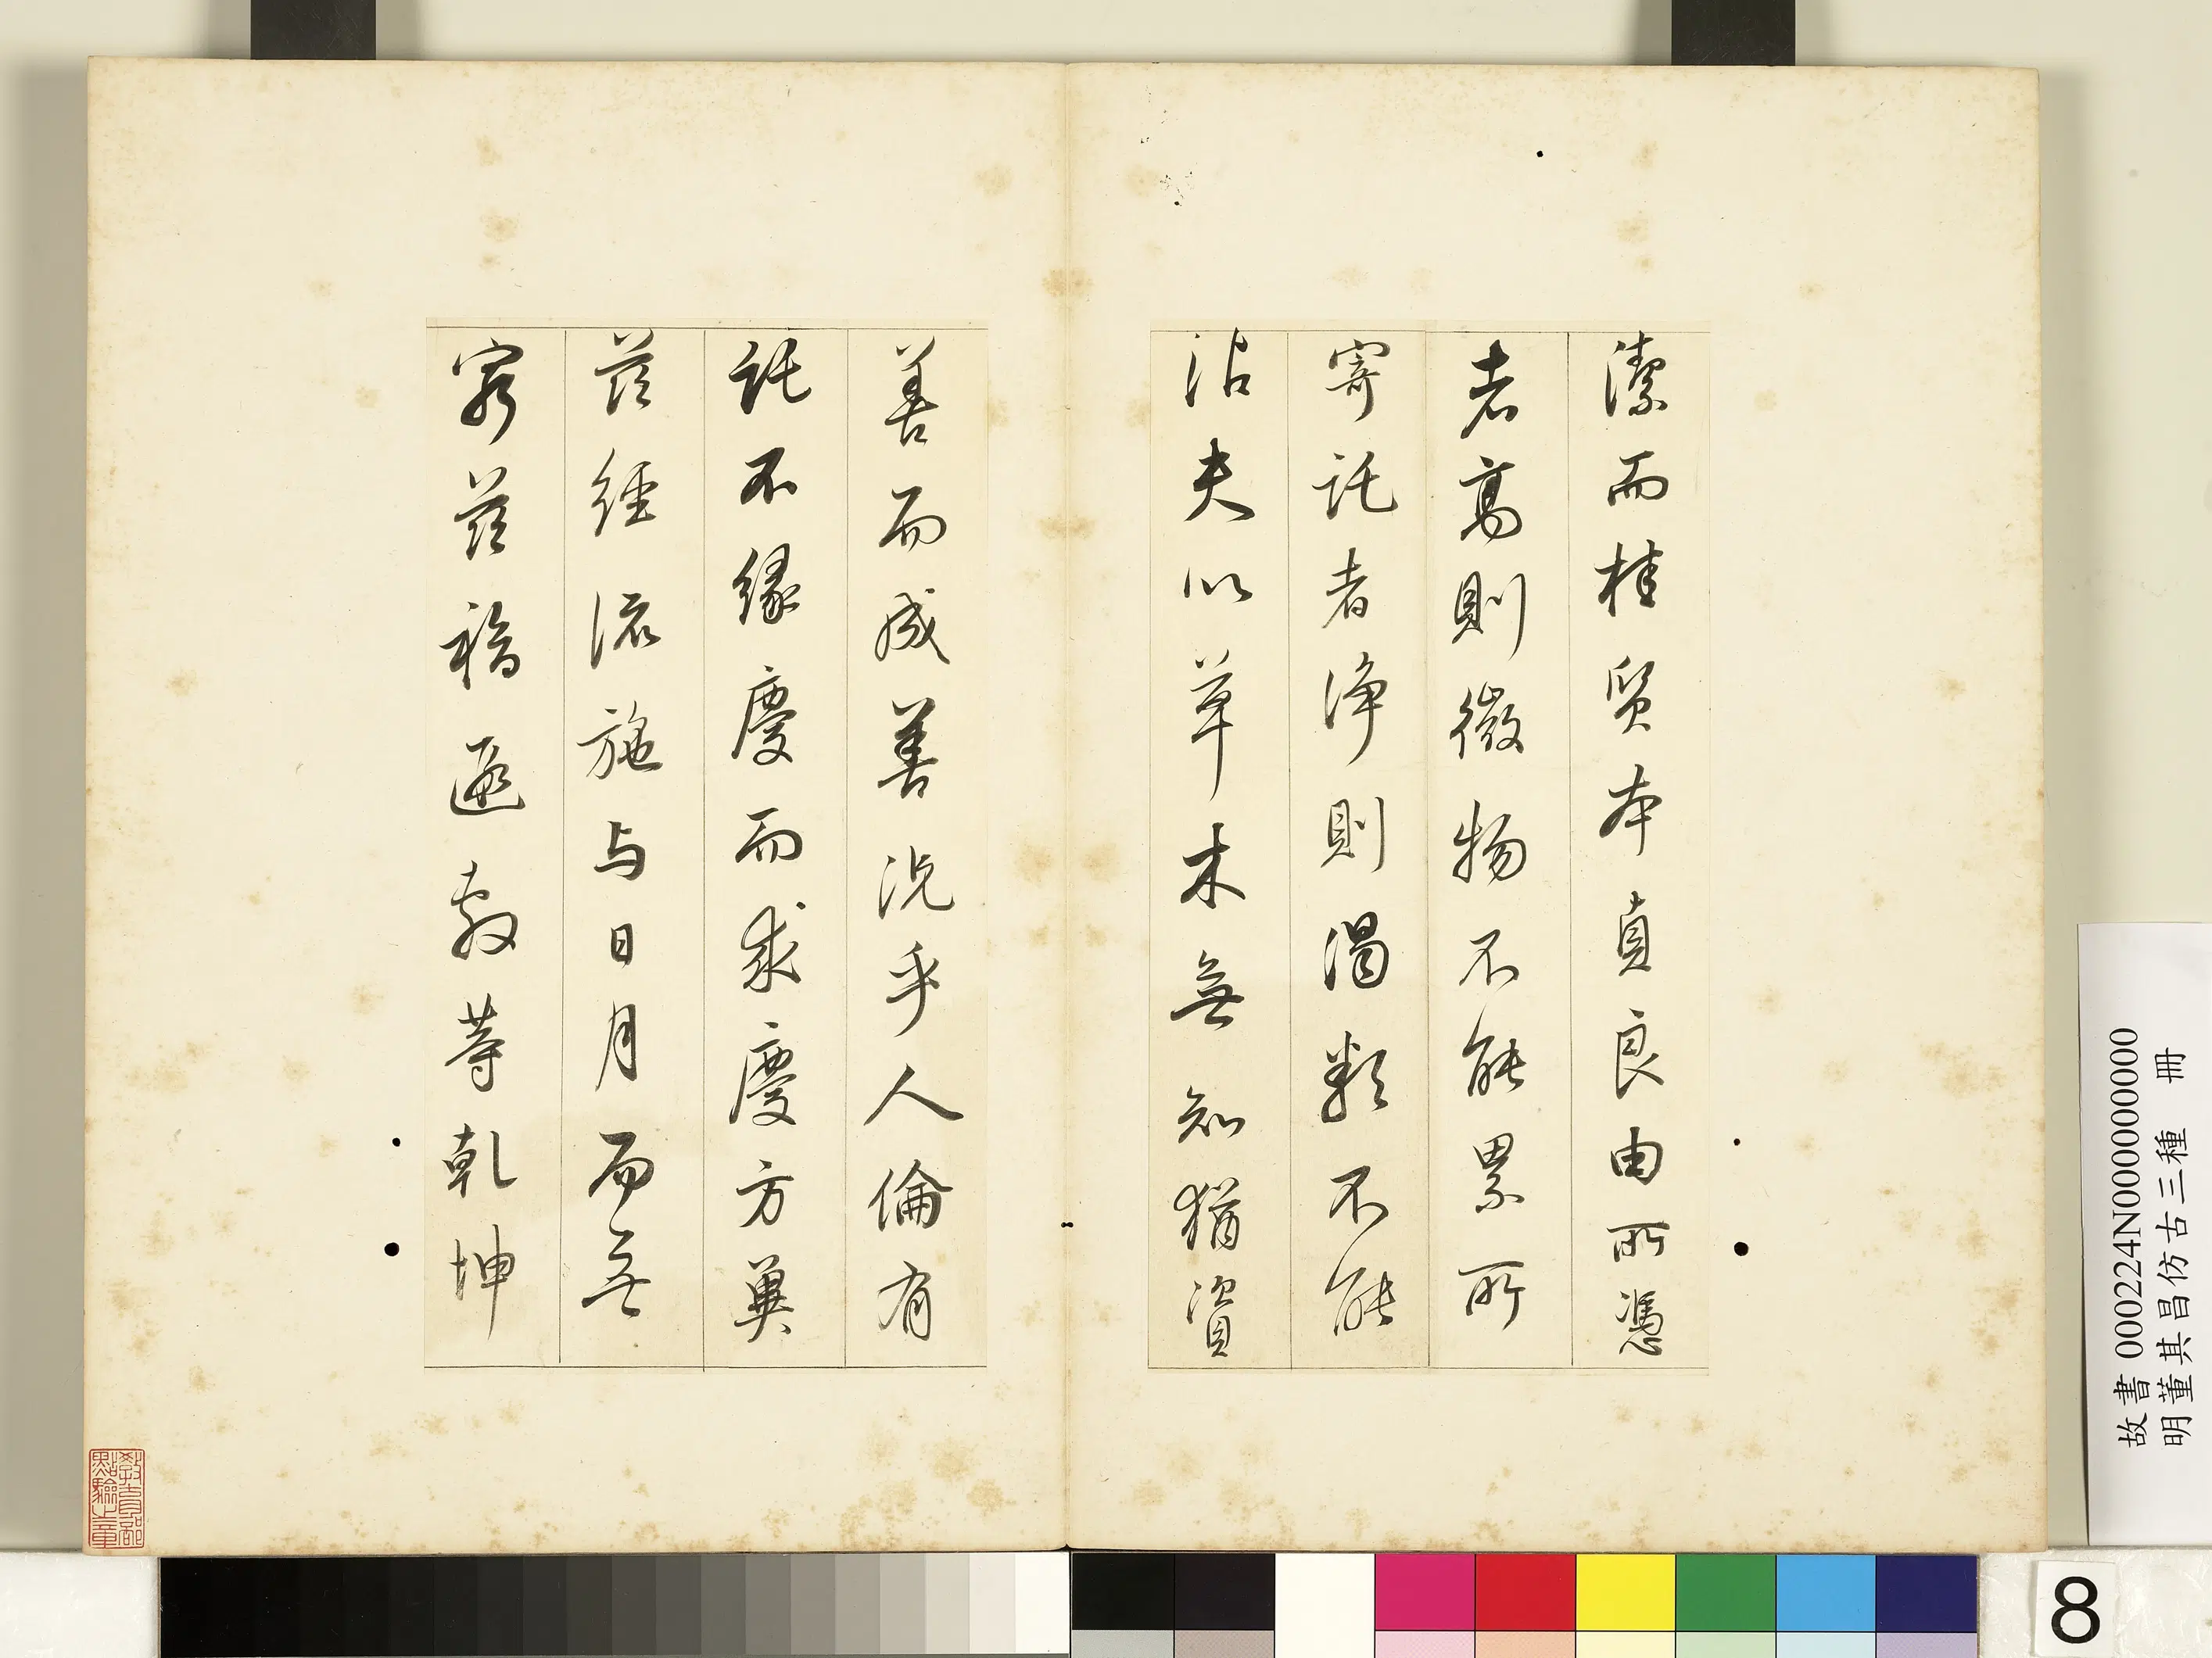 潔而桂質本貞良由所憑
者高則微物不能累所
寄託者淨則濁類不能
沾夫以草木無知猶資
善而成善況乎人倫有
託不緣慶而求慶方冀
茲經流施与日月而無
窮茲福遐敷等乾坤
故書 000224N000000000
明董其昌仿古三種 冊
教育部點驗之章
8